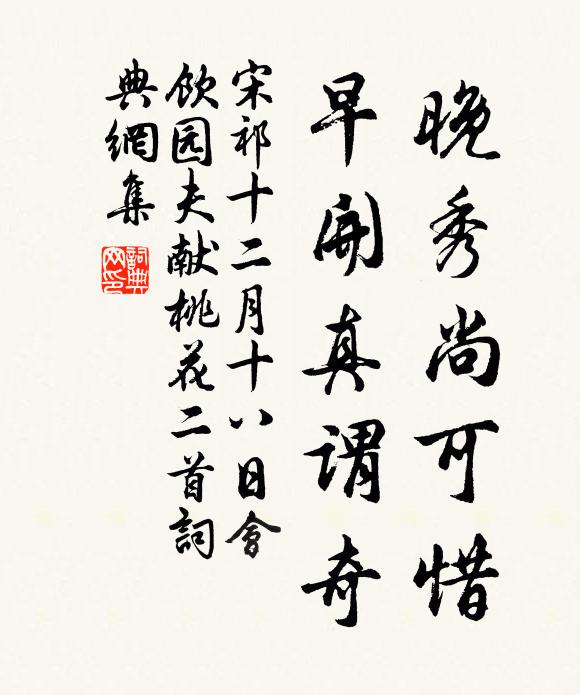 晚秀尚可惜
早開真謂奇
宋祁十二月十八日會
飲园夫献桃花二首詞
典網集
詞典
网印